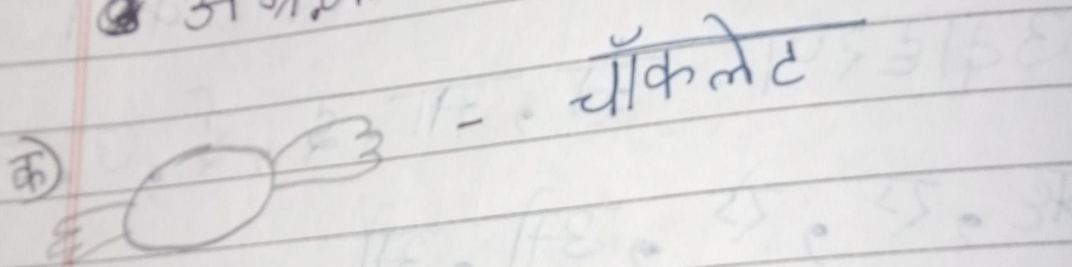 क) - चॉकलेट